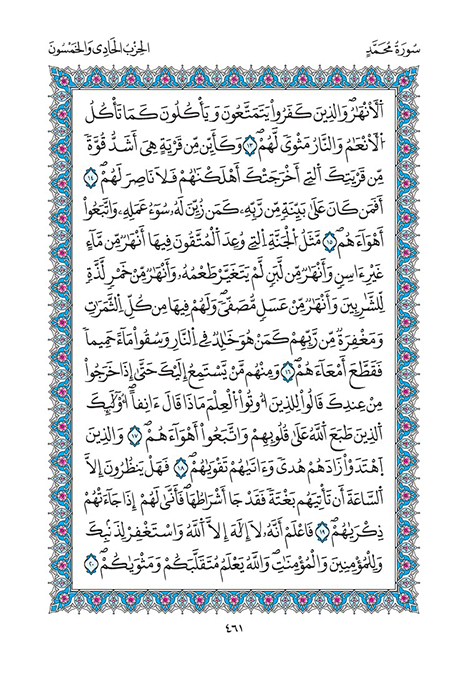 سُورَةُ مُحَمَّدٍ الحِزْبُ الحَادِي وَالخَمْسُونَ
اُ۬لَانْهَٰرُۖ وَالذِينَ كَفَرُواْ يَتَمَتَّعُونَ وَيَأْكُلُونَ كَمَا تَأْكُلُ
اُ۬لَانْعَٰمُ وَالنَّارُ مَثْوىٗ لَّهُمْۖ ١٣ وَكَأَيِّن مِّن قَرْيَةٍ هِيَ أَشَدُّ قُوَّةٗ
مِّن قَرْيَتِكَ اَ۬لتِےٓ أَخْرَجَتْكَ أَهْلَكْنَٰهُمْ فَلَا نَاصِرَ لَهُمْۖ ١٤
أَفَمَن كَانَ عَلَىٰ بَيِّنَةٖ مِّن رَّبِّهِۦ كَمَن زُيِّنَ لَهُۥ سُوٓءُ عَمَلِهِۦ وَاتَّبَعُوٓاْ
أَهْوَآءَهُمْۖ ١٥ مَّثَلُ اُ۬لْجَنَّةِ اِ۬لتِے وُعِدَ اَ۬لْمُتَّقُونَ فِيهَآ أَنْهَٰرٞ مِّن مَّآءٍ
غَيْرِ ءَاسِنٖ وَأَنْهَٰرٞ مِّن لَّبَنٖ لَّمْ يَتَغَيَّرْ طَعْمُهُۥ وَأَنْهَٰرٞ مِّنْ خَمْرٖ لَّذَّةٖ
لِّلشَّٰرِبِينَ وَأَنْهَٰرٞ مِّنْ عَسَلٖ مُّصَفّىٗۖ وَلَهُمْ فِيهَا مِن كُلِّ اِ۬لثَّمَرَٰتِ
وَمَغْفِرَةٞ مِّن رَّبِّهِمْ كَمَنْ هُوَ خَٰلِدٞ فِے اِ۬لنَّارِ وَسُقُواْ مَآءً حَمِيماٗ
فَقَطَّعَ أَمْعَآءَهُمْۖ ١٦ وَمِنْهُم مَّنْ يَّسْتَمِعُ إِلَيْكَ حَتَّىٰٓ إِذَا خَرَجُواْ
مِنْ عِندِكَ قَالُواْ لِلذِينَ أُوتُواْ اُ۬لْعِلْمَ مَاذَا قَالَ ءَانِفاًۖ أُوْلَٰٓئِكَ
اَ۬لذِينَ طَبَعَ اَ۬للَّهُ عَلَىٰ قُلُوبِهِمْ وَاتَّبَعُوٓاْ أَهْوَآءَهُمْۖ ١٧ وَالذِينَ
اَ۪هْتَدَوْاْ زَادَهُمْ هُدىٗ وَءَاتَيٰهُمْ تَقْوَيٰهُمْۖ ١٨ فَهَلْ يَنظُرُونَ إِلَّا
اَ۬لسَّاعَةَ أَن تَأْتِيَهُم بَغْتَةٗ فَقَدْ جَآ أَشْرَاطُهَاۖ فَأَنّىٰ لَهُمْ إِذَا جَآءَتْهُمْ
ذِكْرَيٰهُمْۖ ١٩ فَاعْلَمْ أَنَّهُۥ لَآ إِلَٰهَ إِلَّا اَ۬للَّهُ وَاسْتَغْفِرْ لِذَنۢبِكَ
وَلِلْمُؤْمِنِينَ وَالْمُؤْمِنَٰتِۖ وَاللَّهُ يَعْلَمُ مُتَقَلَّبَكُمْ وَمَثْوَيٰكُمْۖ ٢٠
٤٦١